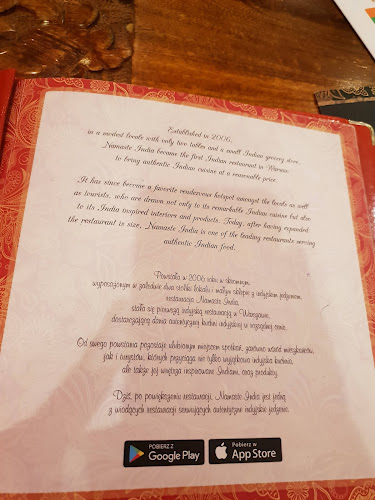 Established in 2006,
in a modest locale with only two tables and a small Indian grocery store,
Namaste India became the first Indian restaurant in Warsaw
to bring authentic Indian cuisine at a reasonable price.
It has since become a favorite rendezvous hotspot amongst the locals as well
as tourists, who are drawn not only to its remarkable Indian cuisine but also
to its India inspired interiors and products. Today, after having expanded
the restaurant in size, Namaste India is one of the leading restaurants serving
authentic Indian food.
Powstała w 2006 roku w skromnym,
wyposażonym w zaledwie dwa stoliki lokalu i małym sklepie z indyjskim jedzeniem,
restauracja Namaste India,
stała się pierwszą indyjską restauracją w Warszawie,
dostarczającą dania autentycznej kuchni indyjskiej w rozsądnej cenie.
Od swego powstania pozostaje ulubionym miejscem spotkań, zarówno wśród mieszkańców,
jak i turystów, których przyciąga nie tylko wyjątkowa indyjska kuchnia,
ale także jej wnętrza inspirowane Indiami, oraz produkty.
Dziś, po powiększeniu restauracji, Namaste India jest jedną
z wiodących restauracji serwujących autentyczne indyjskie jedzenie.
POBIERZ Z
Google Play
Pobierz w
App Store